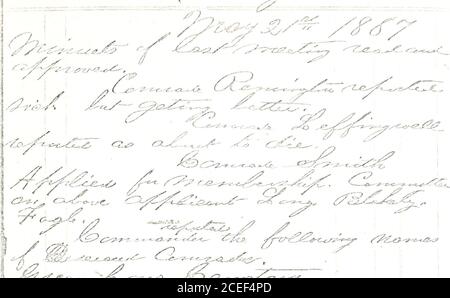 May 21st 1887
Minuets of last meeting read and
approved.
Comrade Remington reported
sick but getting better.
Comrade Leffingwell
reported as about to die.
Comrade Smith
Applied for membership. Committee
on above applicant Long Blakely
Fogle.
reported
Commander the following names
of Deceased Comrades.
alamy
Image ID: 2CEF4PD
www.alamy.com